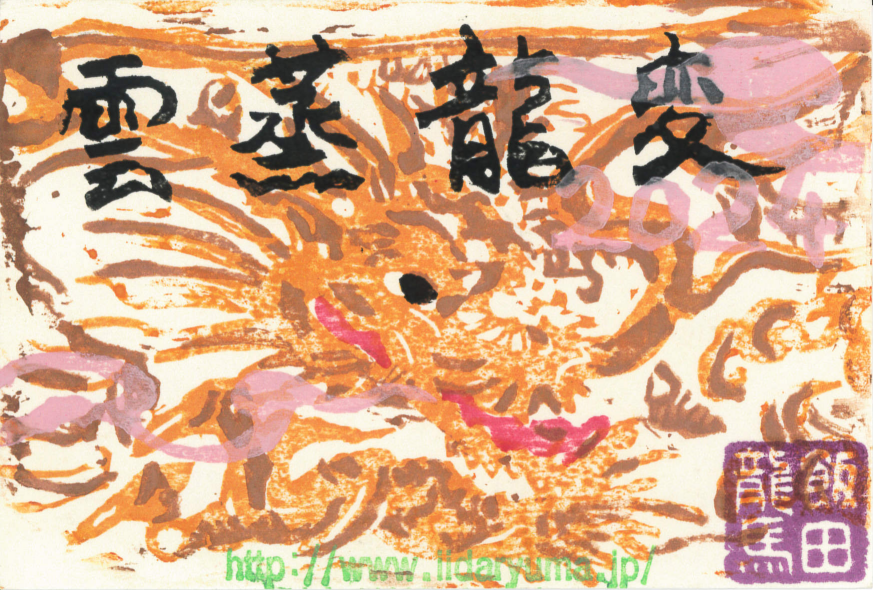 雲蒸龍変
2024
飯田
龍馬
http://www.iidaryuma.jp/